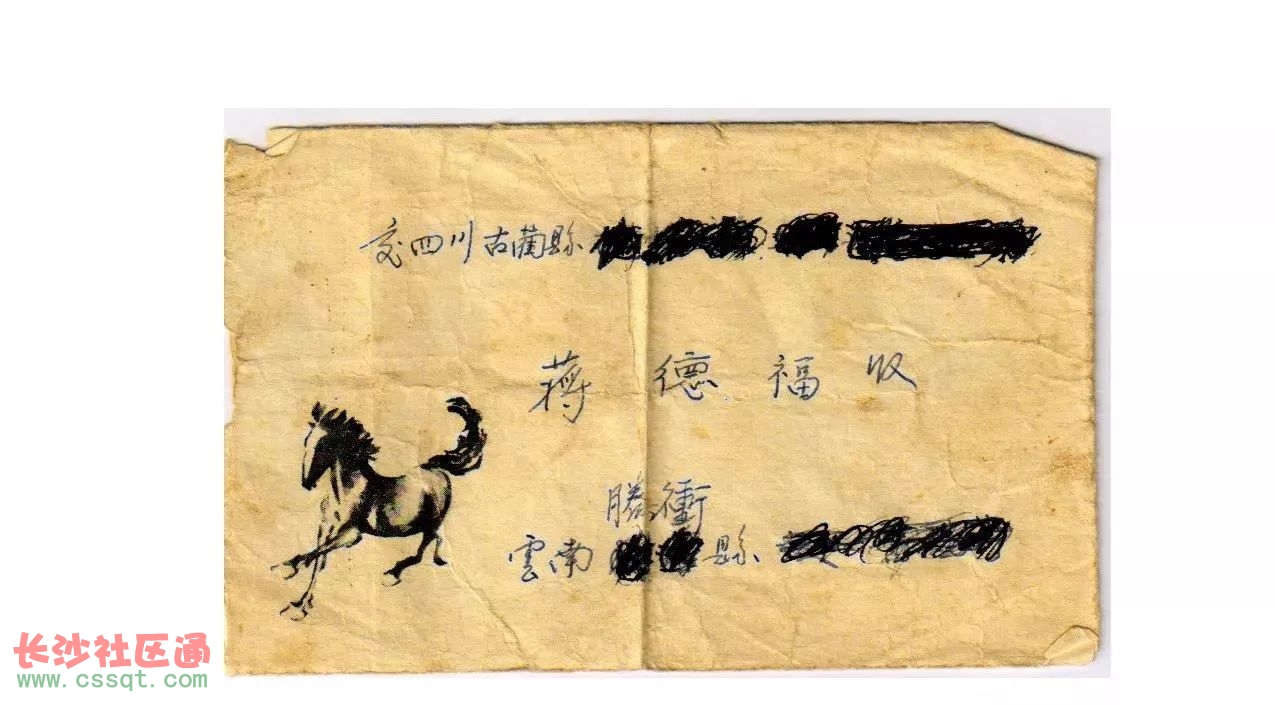 交四川古藺縣
蔣德福收
騰衝
雲南縣
长沙社区通
www.cssqt.com